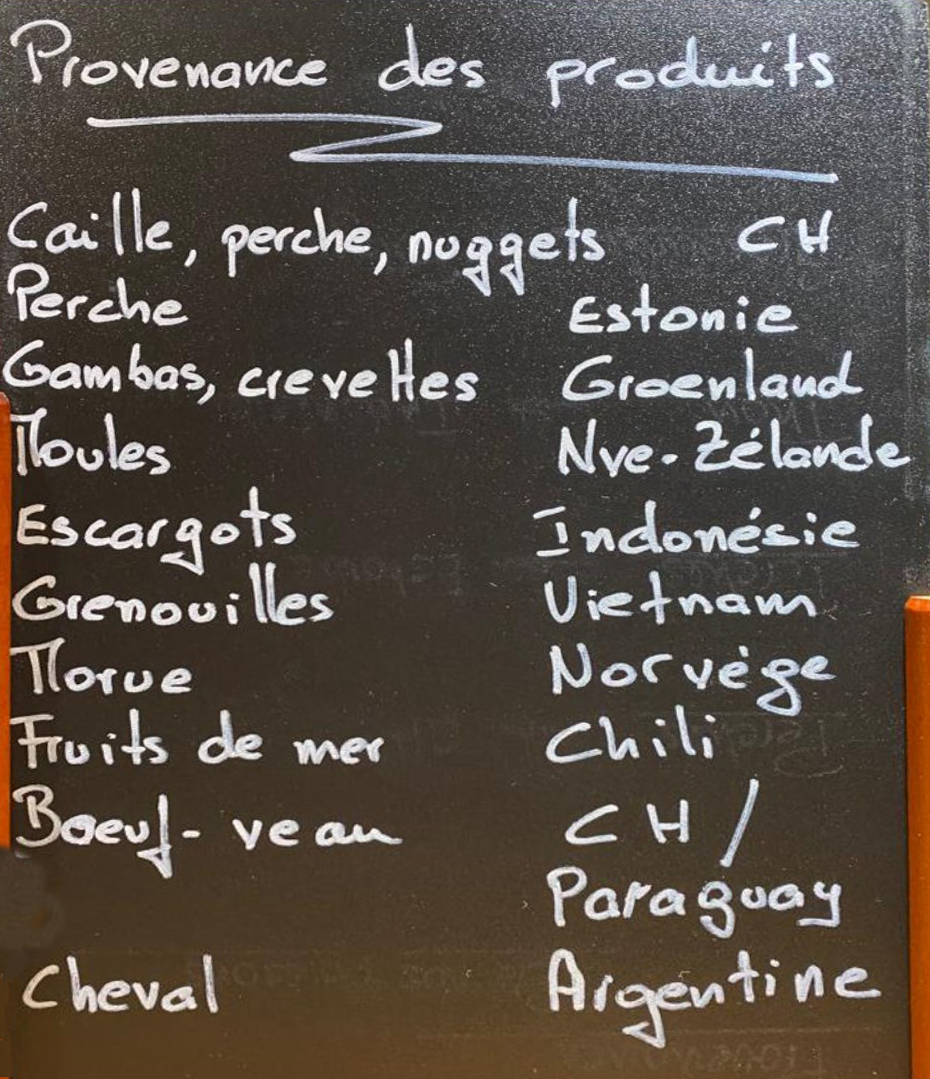 Provenance des produits
Caille, perche, nuggets CH
Perche Estonie
Gambas, crevettes Groenland
Moules Nve-Zélande
Escargots Indonésie
Grenouilles Vietnam
Morue Norvège
Fruits de mer Chili
Boeuf-veau CH /
Paraguay
Cheval Argentine